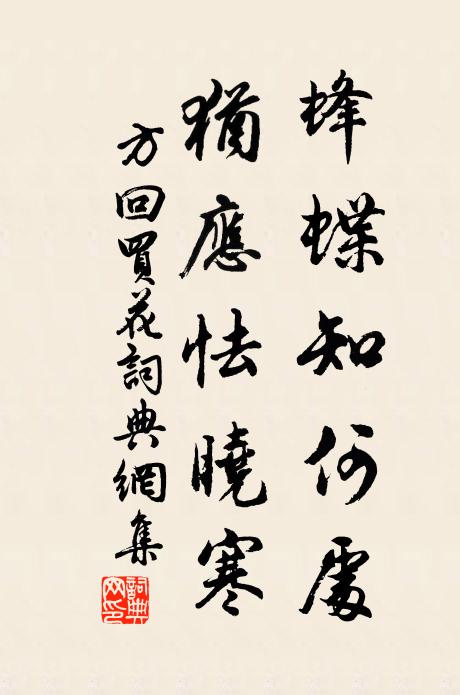 蜂蝶知何處
猶應怯曉寒
方回買花詞典網集
詞典
网印